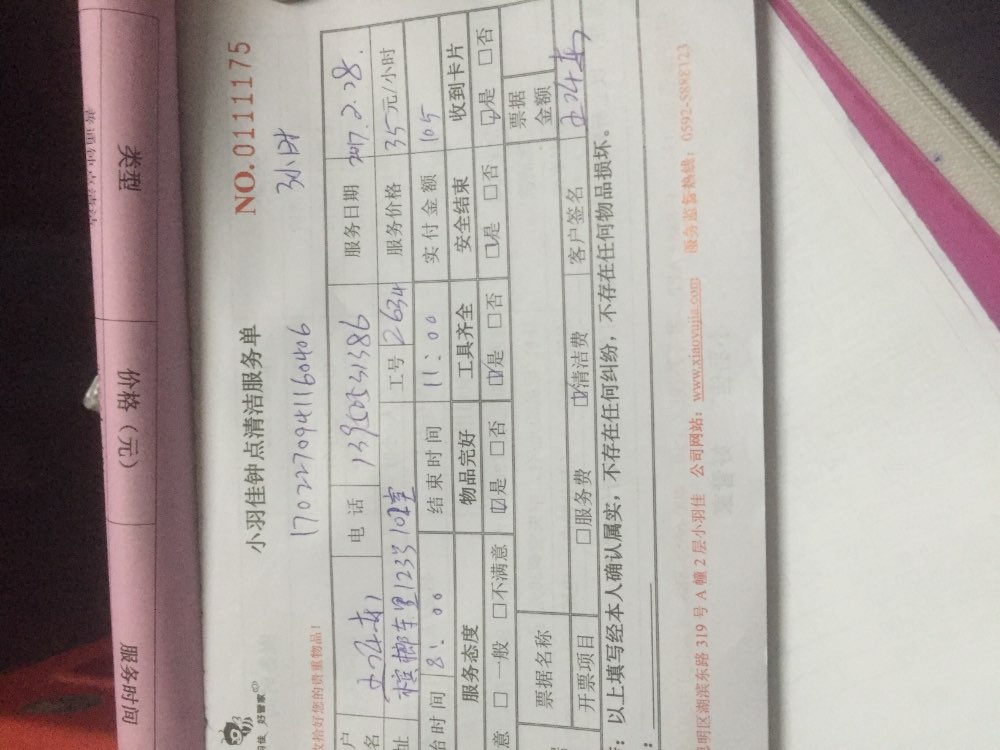 类型
价格（元）
服务时间
小羽佳钟点清洁服务单
NO.0111175
17022709411160406
3小时
收拾好您的贵重物品！
好管家
电 话
服务日期
2.28.
槟榔东里123
工号 2634 服务价格 35元/小时
时间 8:00 结束时间 11:00 实付金额 105
服务态度 物品完好 工具齐全 安全结束 收到卡片
意 □一般 □不满意 ☑是 □否 ☑是 □否 ☑是 □否 ☑是 □否
票据名称 票据金额
开票项目 □服务费 ☑清洁费 客户签名
以上填写经本人确认属实，不存在任何纠纷，不存在任何物品损坏。
明区湖滨东路 319 号 A 幢 2 层小羽佳 公司网站：www.xiaoyujia.com 服务监督热线：0592-5888123